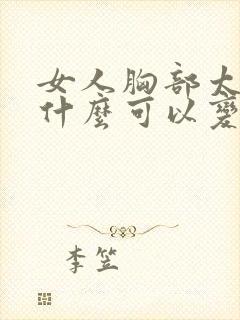 女人胸部大
什麼可以變
李笠